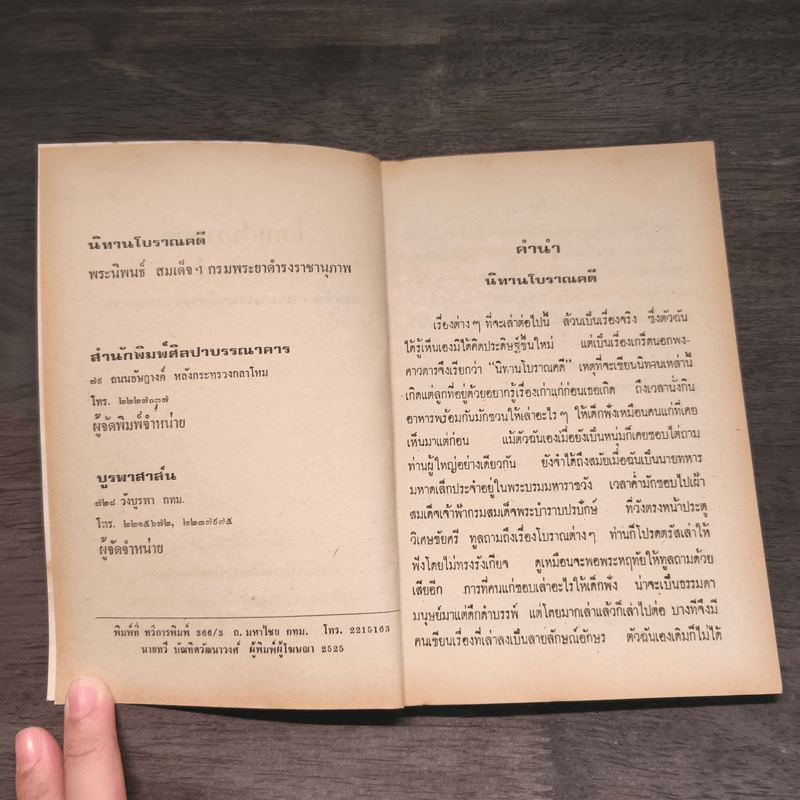 นิทานโบราณคดี
พระนิพนธ์ สมเด็จฯ กรมพระยาดำรงราชานุภาพ
สำนักพิมพ์ศิลปาบรรณาคาร
๗๙ ถนนอัษฎางค์ หลังกระทรวงกลาโหม
โทร. ๒๒๒๗๐๓๗
ผู้จัดพิมพ์จำหน่าย
บูรพาสาส์น
๗๒๘ วังบูรพา กทม.
โทร. ๒๒๑๕๖๗๒, ๒๒๓๗๙๗๕
ผู้จัดจำหน่าย
พิมพ์ที่ ทวีการพิมพ์ 366/3 ถ. มหาไชย กทม. โทร. 2215163
นายทวี บัณฑิตวัฒนาวงศ์ ผู้พิมพ์ผู้โฆษณา 2525
คำนำ
นิทานโบราณคดี
เรื่องต่าง ๆ ที่จะเล่าต่อไปนี้ ล้วนเป็นเรื่องจริง ซึ่งตัวฉัน
ได้รู้เห็นเองมิได้คิดประดิษฐ์ขึ้นใหม่ แต่เป็นเรื่องเกร็ดนอกพง-
ศาวดารจึงเรียกว่า “นิทานโบราณคดี” เหตุที่จะเขียนนิทานเหล่านี้
เกิดแต่ลูกที่อยู่ด้วยอยากรู้เรื่องเก่าแก่ก่อนเธอเกิด ถึงเวลานั่งกิน
อาหารพร้อมกันมักชวนให้เล่าอะไร ๆ ให้เด็กฟังเหมือนคนแก่ที่เคย
เห็นมาแต่ก่อน แม้ตัวฉันเองเมื่อยังเป็นหนุ่มก็เคยชอบไต่ถาม
ท่านผู้ใหญ่อย่างเดียวกัน ยังจำได้ถึงสมัยเมื่อฉันเป็นนายทหาร
มหาดเล็กประจำอยู่ในพระบรมมหาราชวัง เวลาค่ำมักชอบไปเฝ้า
สมเด็จเจ้าฟ้ากรมสมเด็จพระบำราบปรปักษ์ ที่วังตรงหน้าประตู
วิเศษชัยศรี ทูลถามถึงเรื่องโบราณต่าง ๆ ท่านก็โปรดตรัสเล่าให้
ฟังโดยไม่ทรงรังเกียจ ดูเหมือนจะพอพระหฤทัยให้ทูลถามด้วย
เสียอีก การที่คนแก่ชอบเล่าอะไรให้เด็กฟัง น่าจะเป็นธรรมดา
มนุษย์มาแต่ดึกดำบรรพ์ แต่โดยมากเล่าแล้วก็เล่าไปต่อ บางทีจึงมี
คนเขียนเรื่องที่เล่าลงเป็นลายลักษณ์อักษร ตัวฉันเองเดิมก็ไม่ได้